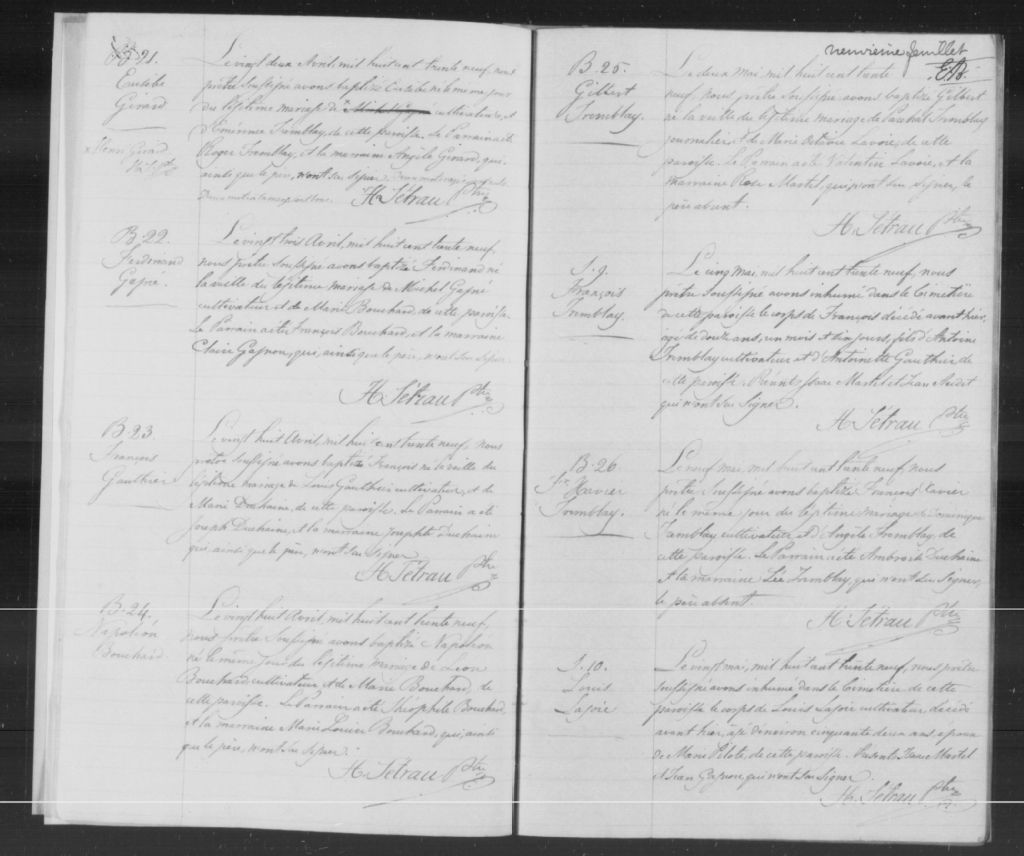 B. 21.
Eusèbe
Girard
Le vingt deux Avril, mil huit cent trente neuf, nous
prêtre soussigné avons baptisé Eusèbe né le même jour
du légitime mariage de cultivateur, et
d'Émérence Tremblay, de cette paroisse. Le Parrain a été
Roger Tremblay, et la marraine Angèle Girard, qui,
ainsi que le père, n'ont su signer.
H. Tétrau Ptre
B. 22.
Ferdinand
Gagné
Le vingt trois Avril, mil huit cent trente neuf,
nous prêtre soussigné avons baptisé Ferdinand né
la veille du légitime mariage de Michel Gagné
cultivateur et de Marie Bouchard, de cette paroisse.
Le Parrain a été François Bouchard, et la marraine
Claire Gagnon, qui, ainsi que le père, n'ont su signer.
H. Tétrau Ptre
B. 23
François
Gauthier
Le vingt huit Avril, mil huit cent trente neuf, nous
prêtre soussigné avons baptisé François né la veille du
légitime mariage de Louis Gauthier cultivateur, et de
Marie Duchaine, de cette paroisse. Le Parrain a été
Joseph Duchaine, et la marraine Josephte Duchaine
qui, ainsi que le père, n'ont su signer.
H. Tétrau Ptre
B. 24.
Napoléon
Bouchard.
Le vingt huit Avril, mil huit cent trente neuf,
nous prêtre soussigné avons baptisé Napoléon
né le même jour du légitime mariage de Léon
Bouchard cultivateur et de Marie Bouchard, de
cette paroisse. Le Parrain a été Théophile Bouchard,
et la marraine Marie Louise Bouchard, qui, ainsi
que le père, n'ont su signer.
H. Tétrau Ptre
neuvieme feuillet
B. 25.
Gilbert
Tremblay.
Le deux Mai, mil huit cent trente
neuf, nous prêtre soussigné avons baptisé Gilbert
né la veille du légitime mariage de Paschal Tremblay
journalier et de Marie Lavoie, de cette
paroisse. Le Parrain a été Valentin Lavoie, et la
marraine Rose Martel, qui n'ont su signer, le
père absent.
H. Tétrau Ptre
S. 9.
François
Tremblay.
Le cinq Mai, mil huit cent trente neuf, nous
prêtre soussigné avons inhumé dans le Cimetière
de cette paroisse le corps de François décédé avant hier,
âgé de douze ans, un mois et six jours, fils d'Antoine
Tremblay cultivateur et d'Antoinette Gauthier de
cette paroisse. Présents Isaac Martel et Jean
qui n'ont su signer.
H. Tétrau Ptre
B. 26.
Frs Xavier
Tremblay.
Le neuf Mai, mil huit cent trente neuf, nous
prêtre soussigné avons baptisé François Xavier
né le même jour du légitime mariage de Dominique
Tremblay cultivateur et d'Angèle Tremblay, de
cette paroisse. Le Parrain a été Ambroise Duchaine
et la marraine Léa Tremblay, qui n'ont su signer,
le père absent.
H. Tétrau Ptre
S. 10.
Louis
Lajoie
Le vingt mai, mil huit cent trente neuf, nous prêtre
soussigné avons inhumé dans le Cimetière de cette
paroisse le corps de Louis Lajoie cultivateur décédé
avant hier, âgé d'environ cinquante deux ans époux
de Marie Pilote, de cette paroisse. Présents Isaac Martel
et Jean Gagnon qui n'ont su signer.
H. Tétrau Ptre